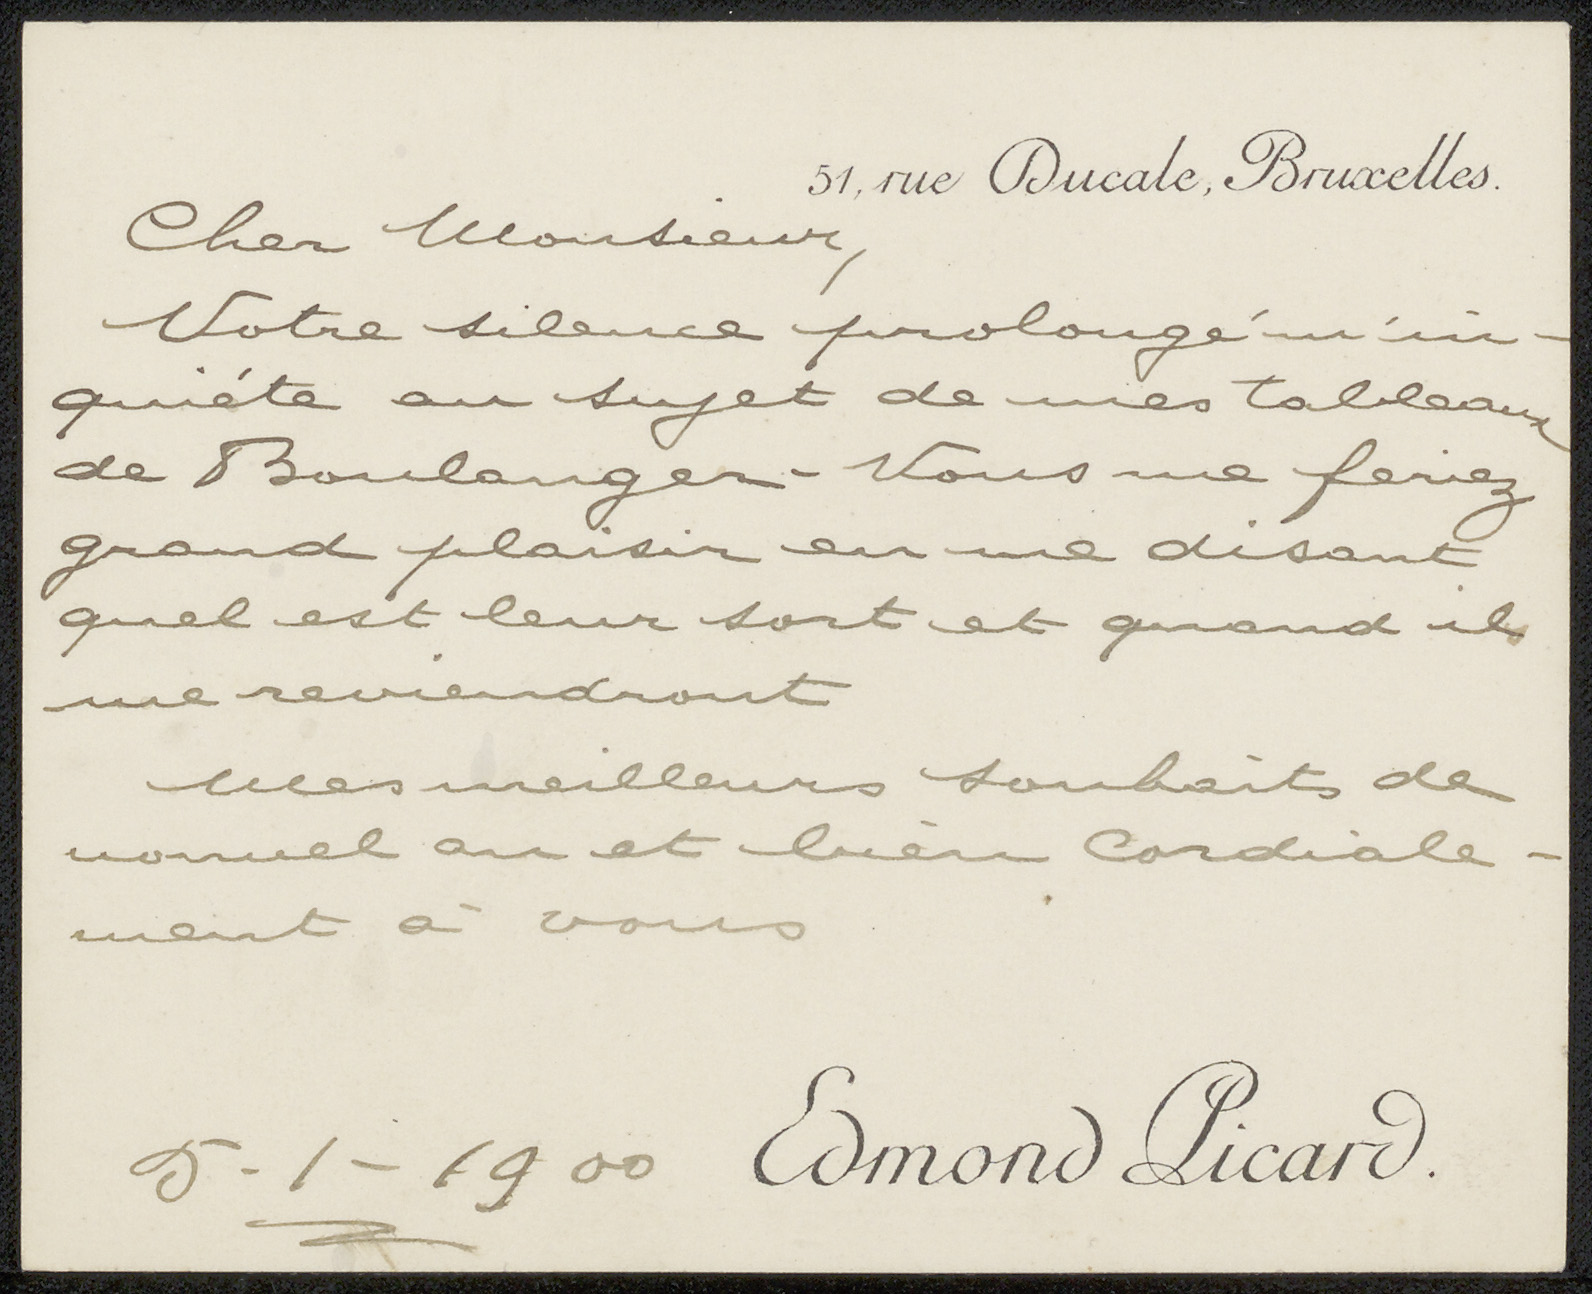 51, rue Ducale, Bruxelles.
Cher Monsieur,
Votre silence prolongé m'in-
quiéte au sujet de mes tableaux
de Boulenger - Vous me feriez
grand plaisir en me disant
quel est leur sort et quand il
me reviendront
Mes meilleurs souhaits de
nouvel an et bien cordiale-
ment à vous
5-1-1900
Edmond Picard.